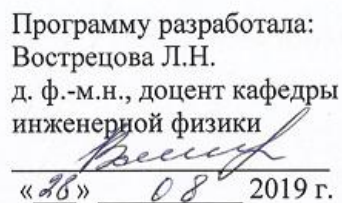 Программу разработала:
Вострецова Л.Н.
д. ф.-м.н., доцент кафедры
инженерной физики
«28» 08 2019 г.